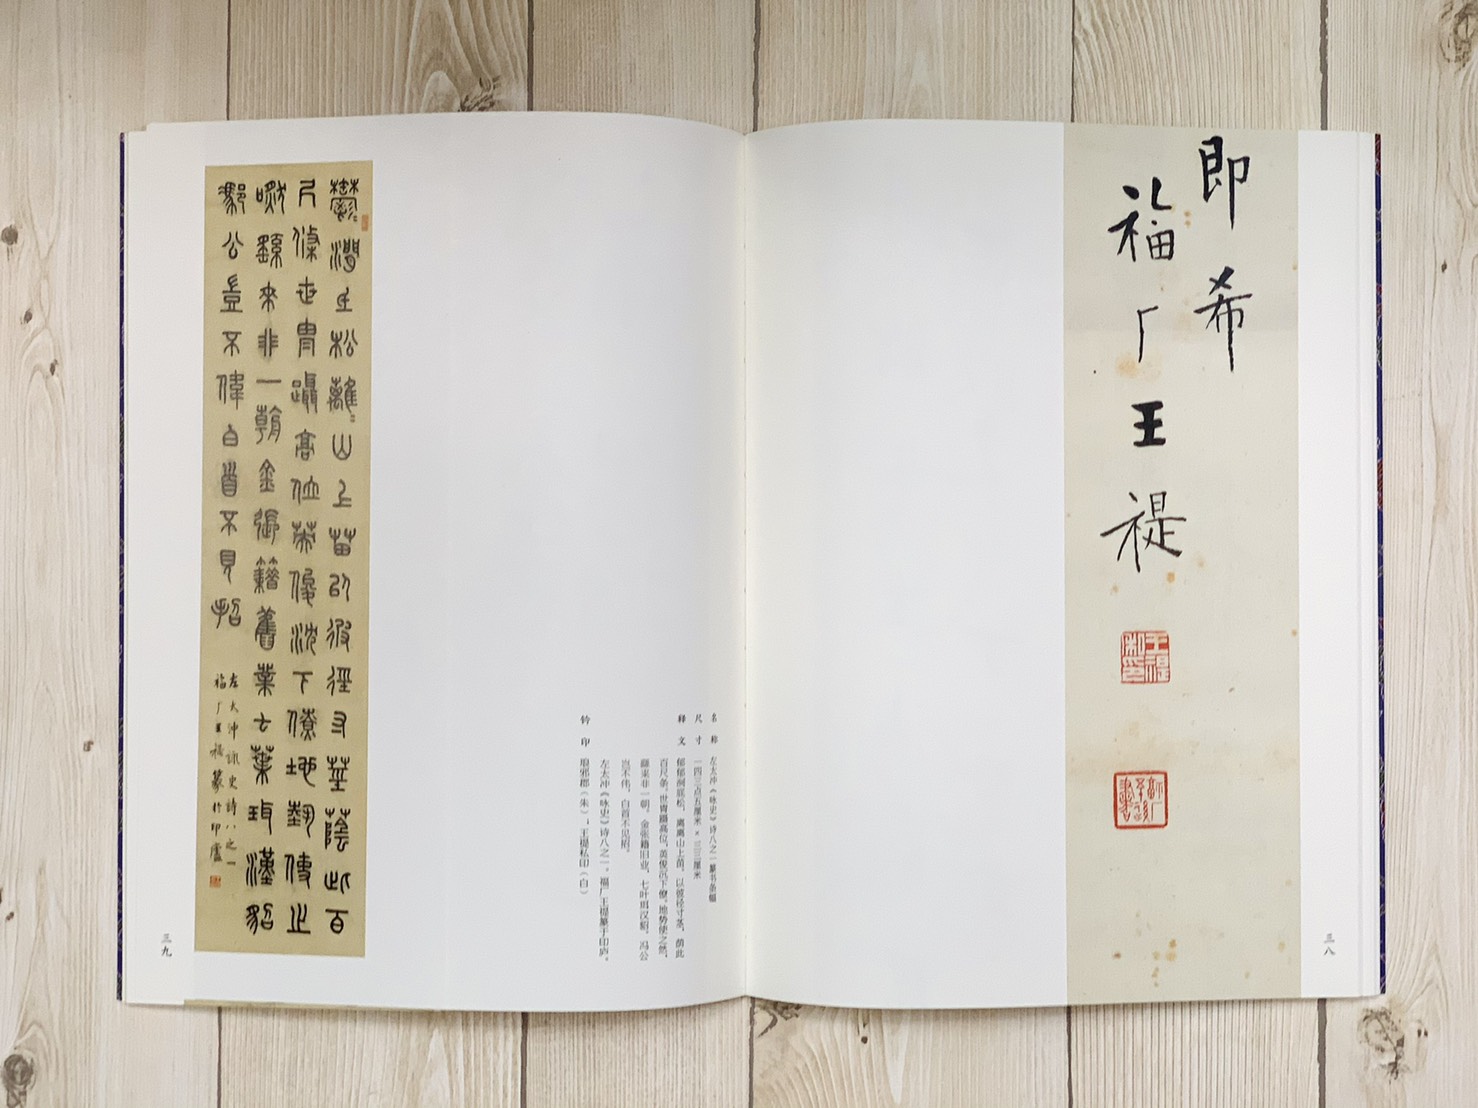 即希
福厂王禔
王禔私印
三八
名称 左太冲《咏史》诗八之一篆书条幅
尺寸 一四三点五厘米×三三厘米
释文 郁郁涧底松，离离山上苗，以彼径寸茎，荫此
百尺条。世胄蹑高位，英俊沉下僚。地势使之然，
繇来非一朝。金张籍旧业，七叶珥汉貂。冯公
岂不伟，白首不见招。
左太冲《咏史》诗八之一，福厂王禔篆于印庐。
钤印 琅邪郡（朱）；王禔私印（白）
鬱=澗底松離=山上苗以彼徑寸莖蔭此百
尺條世胄躡高位英俊沈下僚地埶使之
然繇來非一朝金張籍舊業七葉珥漢貂
馮公豈不偉白首不見招
左太沖詠史詩八之一
福厂王禔篆於印廬
三九